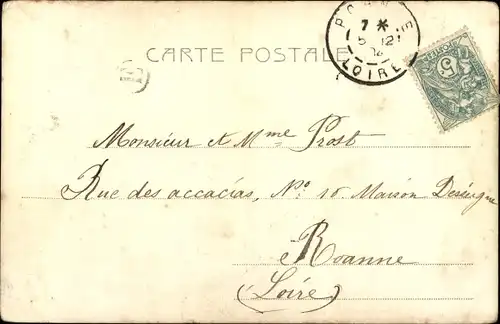 7 *
5 12
LOIRE
CARTE POSTALE
5
Monsieur et Mme Prost
Rue des accacias, No 10. Maison
Roanne
(Loire)